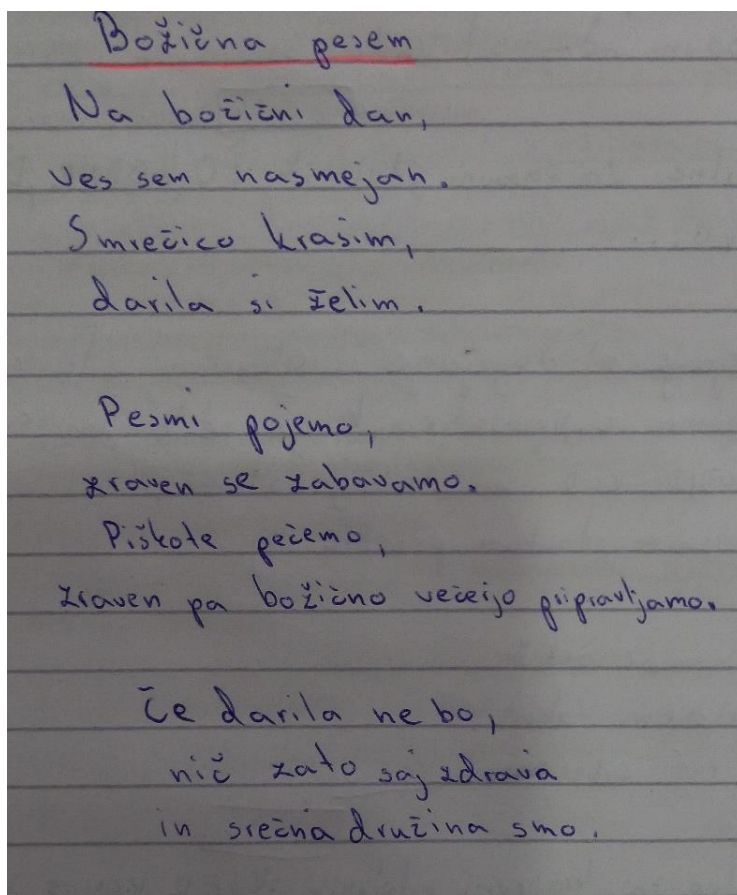 Božična pesem
Na božični dan,
ves sem nasmejan.
Smrečico krasim,
darila si želim.
Pesmi pojemo,
zraven se zabavamo.
Piškote pečemo,
zraven pa božično večerjo pripravljamo.
Če darila ne bo,
nič zato saj zdrava
in srečna družina smo.